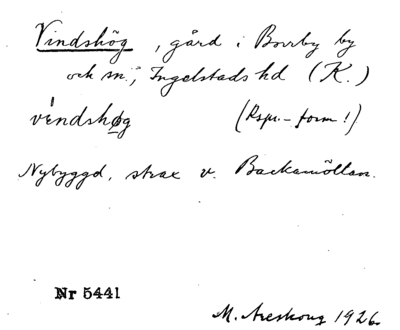 Vindshög, gård i Borrby by
och sn., Ingelstads hd (K.)
véndshøg (Rspr.-form!)
Nybyggd, strax v. Backamöllan.
Nr 5441
M. Areskoug 1926.